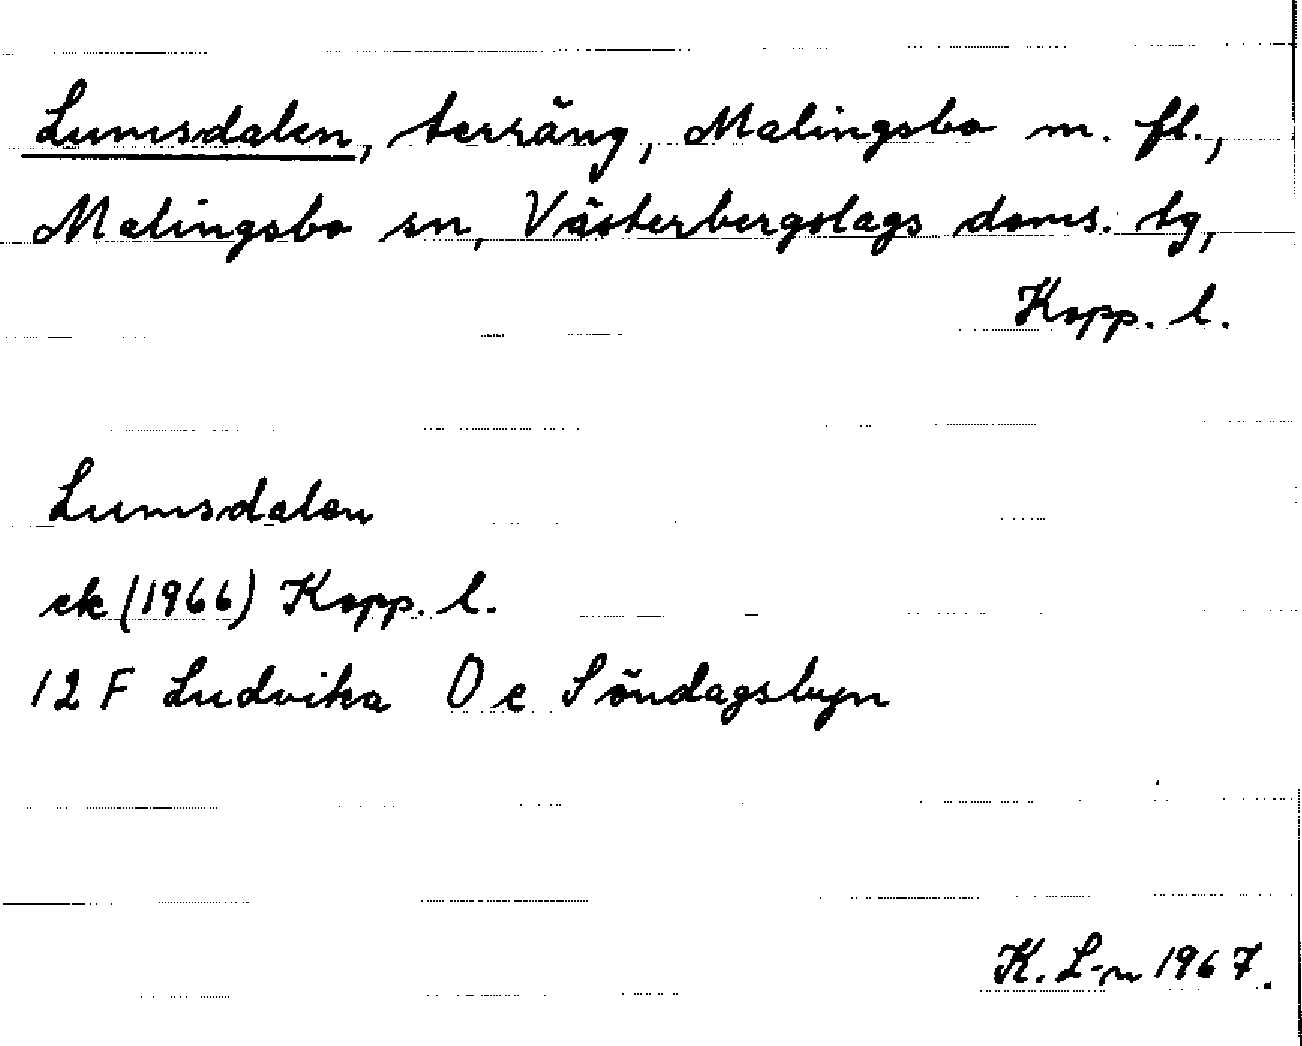 Lumsdalen, terräng, Malingsbo m. fl.,
Malingsbo sn, Västerbergslags doms. tg,
Kopp. l.
Lumsdalen
ek (1966) Kopp. l.
12 F Ludvika 0 e Söndagsbyn
K. L-n 1967.